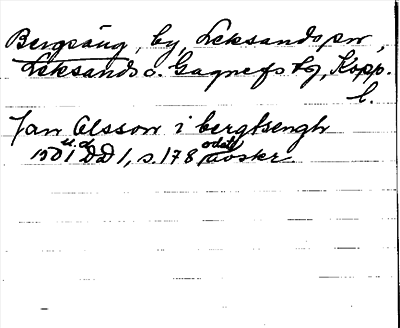 Bergsäng, by, Leksands sn,
Leksands o. Gagnefs tg, Kopp.
l.
Jan Olsson i berghsengh
1501 u.d. DD 1, s. 178 odat. avskr.